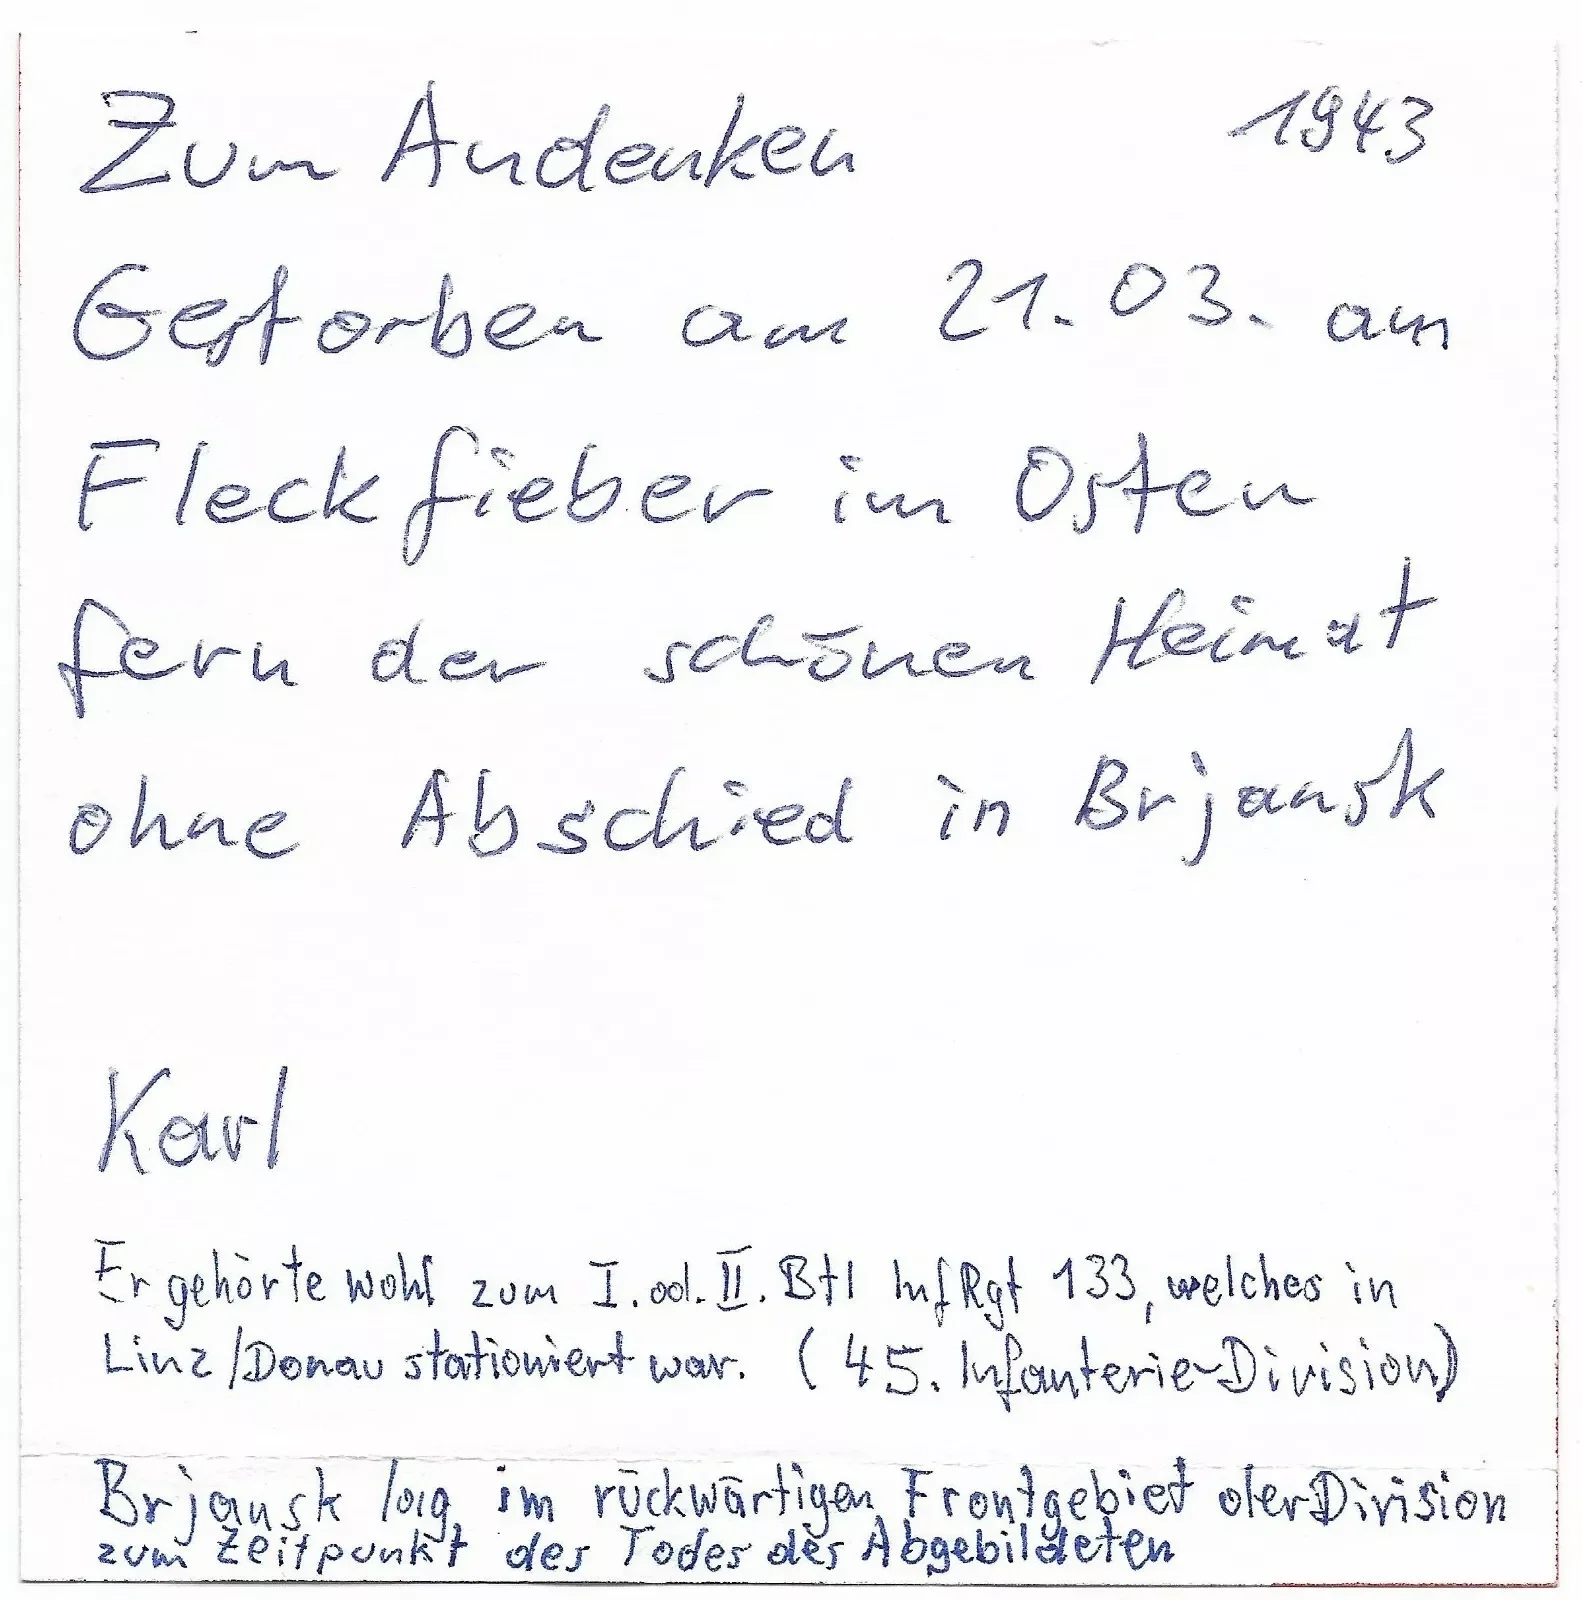 Zum Andenken 1943
Gestorben am 21.03. am
Fleckfieber im Osten
fern der schönen Heimat
ohne Abschied in Brjansk
Karl
Er gehörte wohl zum I. od. II. Btl InfRgt 133, welches in
Linz/Donau stationiert war. (45. Infanterie-Division)
Brjansk lag im rückwärtigen Frontgebiet der Division
zum Zeitpunkt des Todes des Abgebildeten